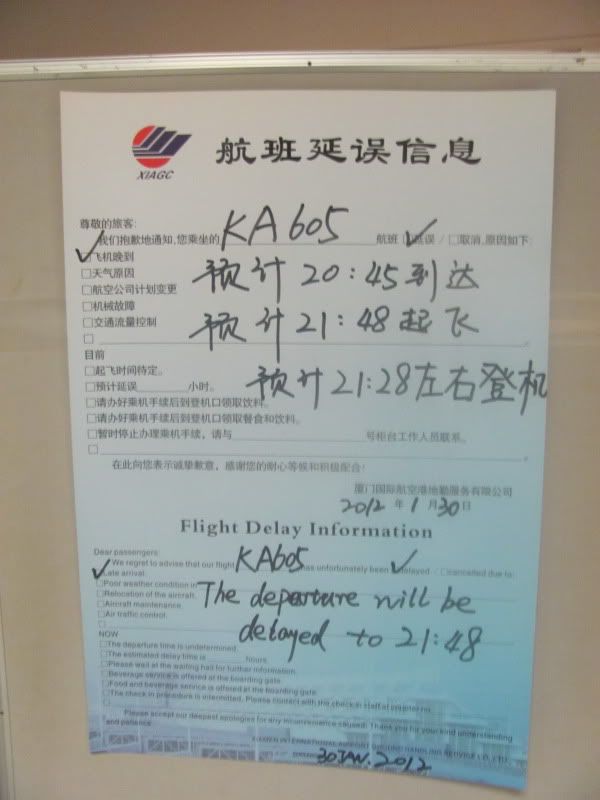 XIAGC
航班延误信息
尊敬的旅客:
我们抱歉地通知,您乘坐的 KA605 航班 ☑延误 / □取消,原因如下:
☑飞机晚到
□天气原因 预计 20:45到达
□航空公司计划变更
□机械故障
□交通流量控制 预计 21:48起飞
□
目前
□起飞时间待定。
□预计延误______小时。 预计21:28左右登机
□请办好乘机手续后到登机口领取饮料。
□请办好乘机手续后到登机口领取餐食和饮料。
□暂时停止办理乘机手续，请与______号柜台工作人员联系。
□
在此向您表示诚挚歉意，感谢您的耐心等候和积极配合!
厦门国际航空港地勤服务有限公司
2012 年 1 月 30 日
Flight Delay Information
Dear passengers:
We regret to advise that our flight KA605 has unfortunately been ☑delayed / □cancelled due to:
☑Late arrival.
□Poor weather condition in
□Relocation of the aircraft. The departure will be
□Aircraft maintenance.
□Air traffic control.
□ delayed to 21:48
NOW
□The departure time is undetermined.
□The estimated delay time is ______ hours.
□Please wait at the waiting hall for further information.
□Beverage service is offered at the boarding gate.
□Food and beverage service is offered at the boarding gate.
□The check in procedure is intermitted. Please contact with the check in staff at counter no
□
Please accept our deepest apologies for any inconvenience caused. Thank you for your kind understanding
and patience.
XIAMEN INTERNATIONAL AIRPORT GROUND HANDLING SERVICE CO., LTD.
30JAN.2012